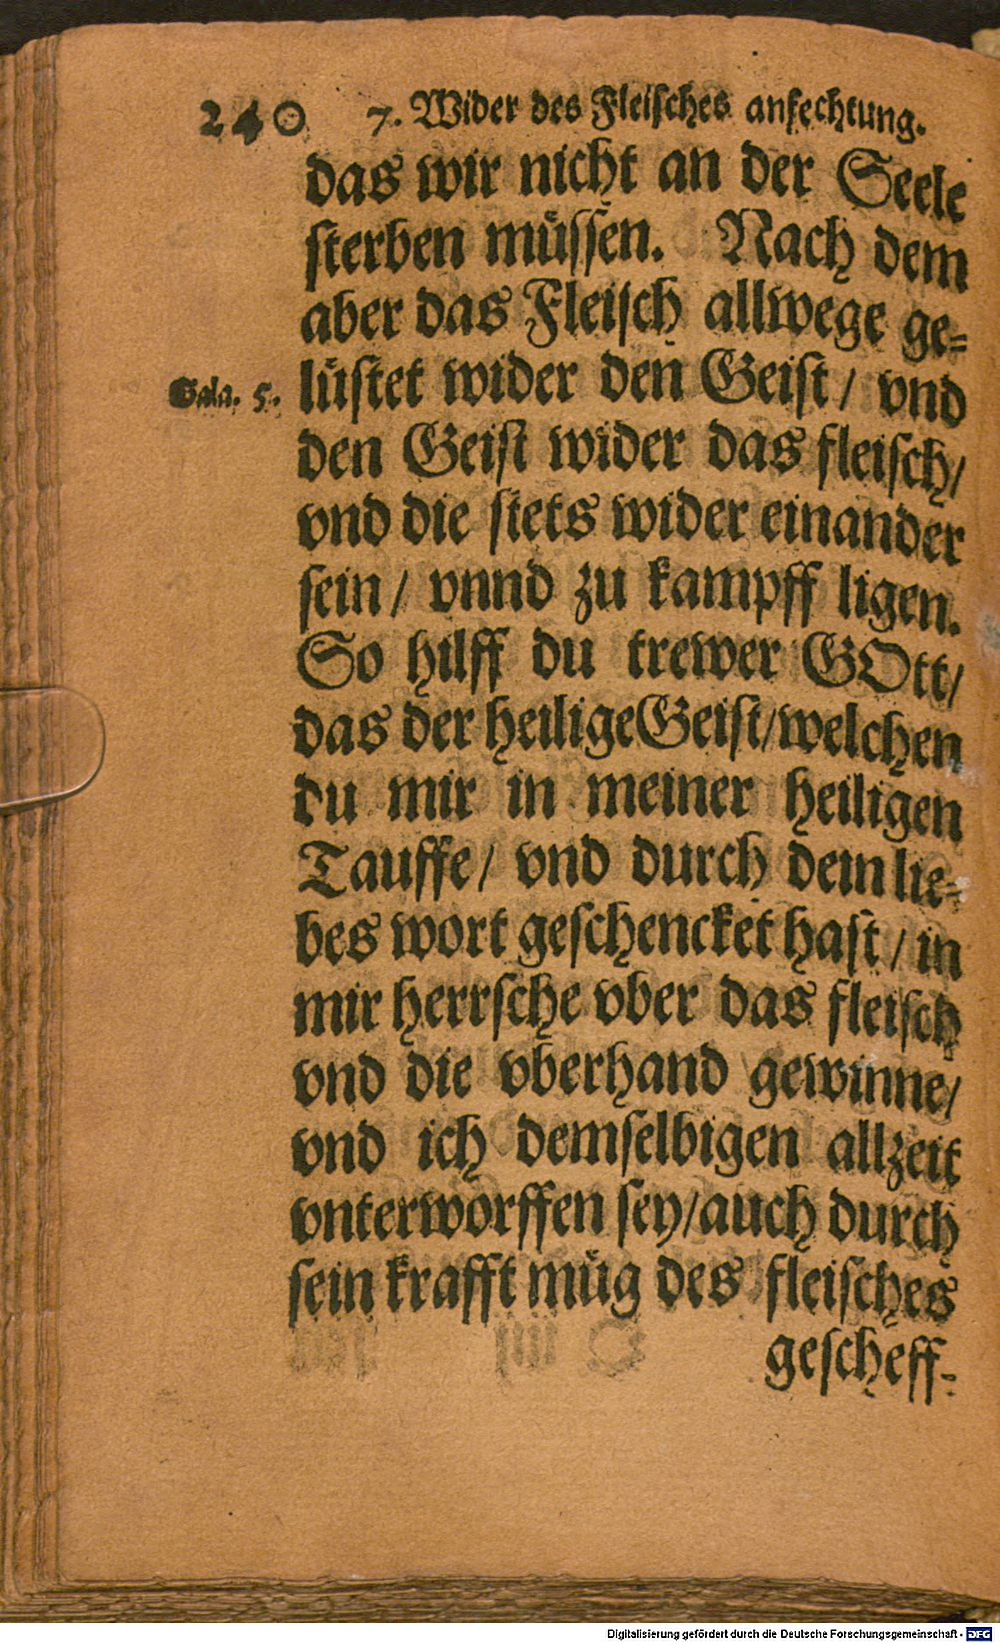 240 7. Wider des Fleisches anfechtung.
das wir nicht an der Seele
sterben müssen. Nach dem
aber das Fleisch allwege ge-
Gala. 5. lüstet wider den Geist / vnd
den Geist wider das fleisch /
vnd die stets wider einander
sein / vnnd zu kampff ligen.
So hilff du trewer GOtt /
das der heilige Geist / welchen
du mir in meiner heiligen
Tauffe / vnd durch dein lie-
bes wort geschencket hast / in
mir herrsche vber das fleisch
vnd die vberhand gewinne /
vnd ich demselbigen allzeit
vnterworffen sey / auch durch
sein krafft müg des fleisches
gescheff-
Digitalisierung gefördert durch die Deutsche Forschungsgemeinschaft - DFG